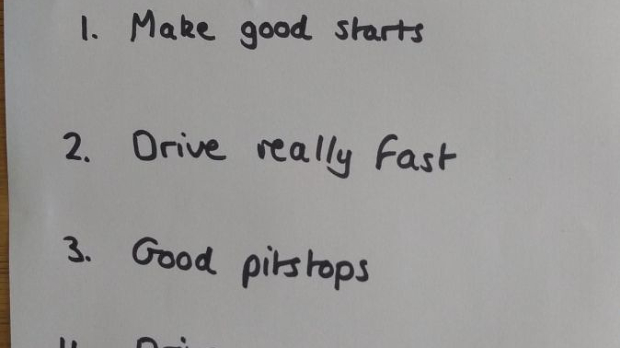 1. Make good starts
2. Drive really fast
3. Good pitstops